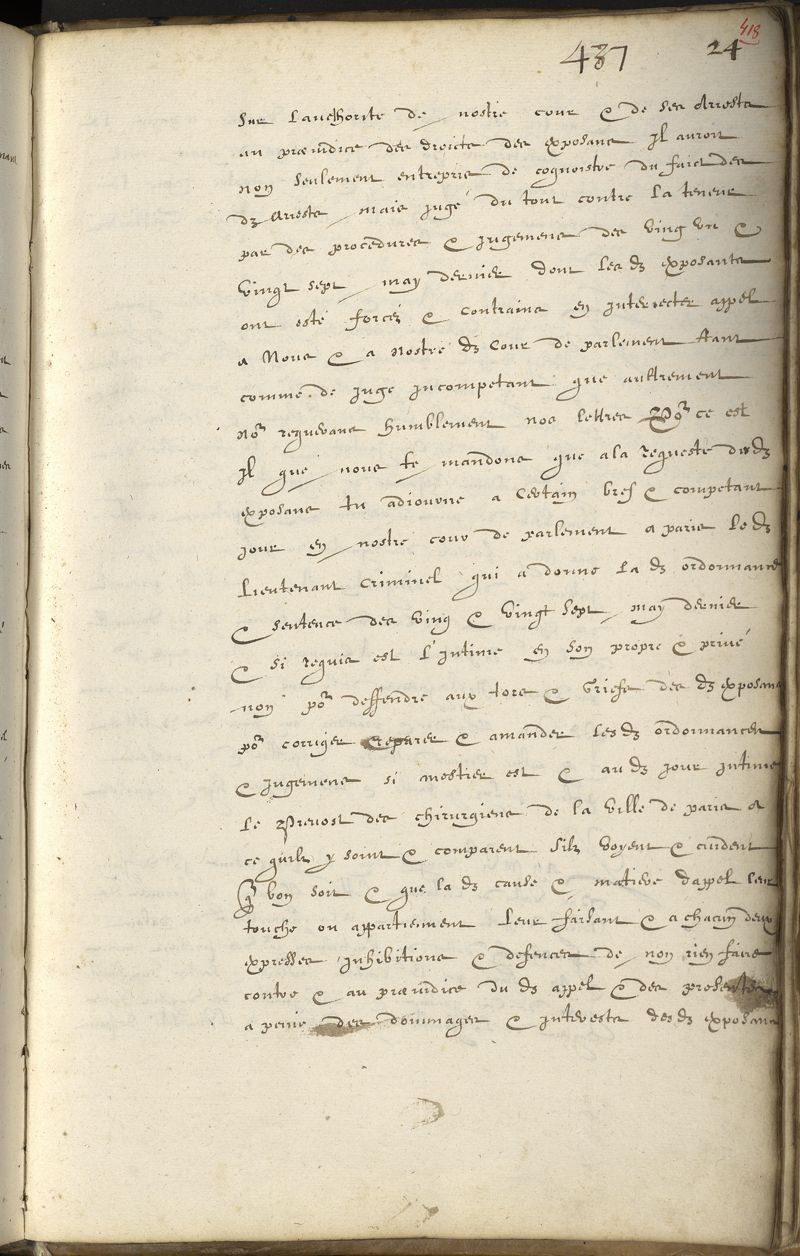 418
437 24
sur lauthorite de nostre cour & de ses Arrests
au præiudice des droicts des exposans Il auroit
non seulement entrepris de cognoistre du faict des
dz Arrests mais jugé du tout contre la teneur
par des procedures & jugemens des ving un &
vingt sept may dernier dont lesdz exposants
ont esté forcéz & contrains en interjecter appel
a Nous & a Nostre dz Cour de parlement tant
comme de juge jncompetant que aultrement
Nor requerans humblement nos lettres Por ce est
Il que nous te mandons que ala requeste desdz
exposans tu adjourne a certain bref & competant
jour en nostre cour de parlement a paris le dz
Lieutenant Criminel qui a donne la dz ordonnance
& sentence des ving & vingt sept may dernier
& si requis est l'Intime en son propre & privé
non por deffendre aux tors & Griefs des dz exposans
por corriger & reparer & amander lesdz ordonnances
& jugemens si mestier est & au dz jour jntime
le Prevost des chirurgiens de la ville de paris a
ce quilz y soint & comparent silz voyent & cuident
q bon soit & que la dz cause & matiere dappel leur
touche ou appartiennent leur faisant & a chacun deux
expresses jnhibitions & defences de non rien faire
contre & au præiudice du dz appel & des presentes
a peine des dommages & interests desdz exposans